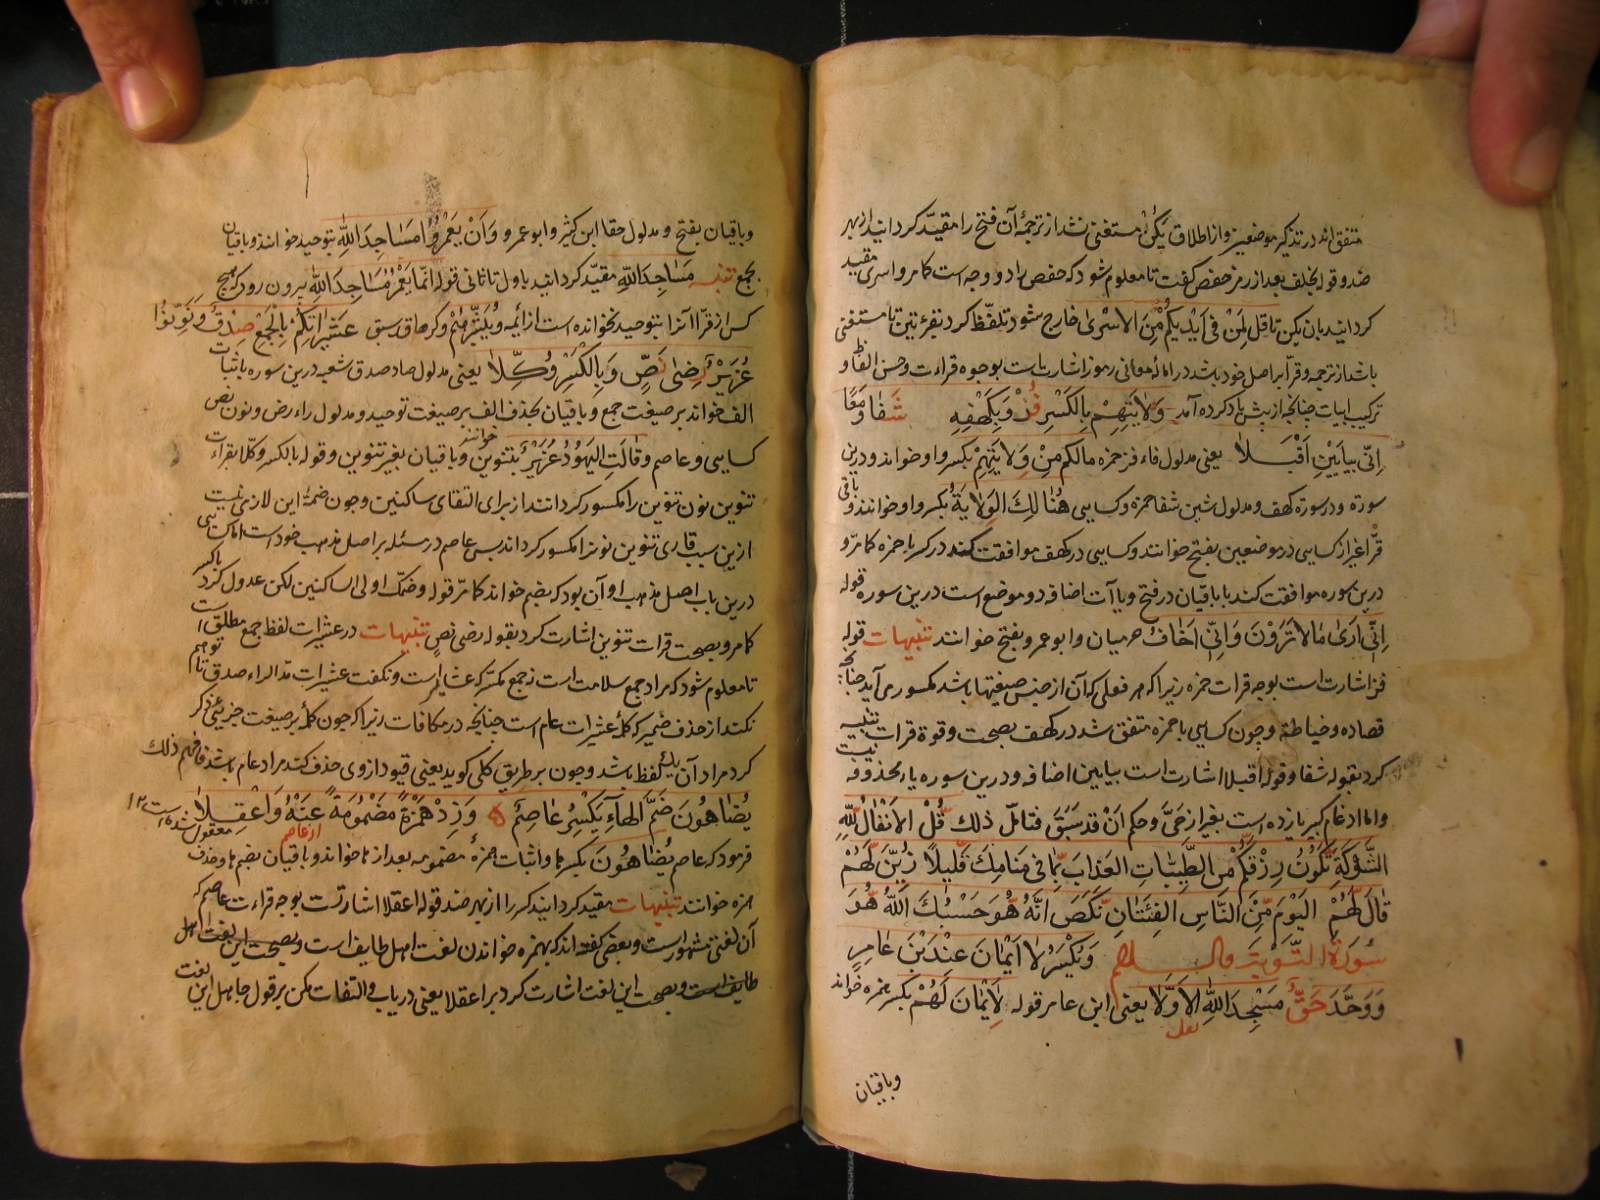 متفق اند در تذکیر موضعین و از اطلاق یکن مستغنی نشد از ترجمه آن فتح را مقید کردانید از بهر
ضد و قوله بخلف بعد از رمز حفص کفت تا معلوم شود که حفص را دو وجه است کامر و اسری مقید
کردانید بان یکن تا قل لِمَنْ فی اَیْدِیکُمْ مِّنَ الاَسْریٰ خارج شود تلفظ کرد بقرءتین تا مستغنی
باشد از ترجمه و قرّا بر اصل خود باشند در اماله معانی رموز اشارت است بوجوه قراءت و حسن الفاظ و
ترکیب ابیات چنانچه از پیش یاد کرده آمد وَلَایَتِهِمْ بِالکَسْرِ فُزْ وَبِکَهْفِهِ شَفَا وَمَعًا
اِنِّی بِیَاءَیْنِ اَقْبَلَا یعنی مدلول فاء فز حمزه مالکم مِنْ وَلَایَتِهِمْ بکسر واو خواند و درین
سوره و در سوره کهف و مدلول شین شفا حمزه و کسایی هُنَالِكَ الوَلَایَةُ بکسر واو خوانند و باقی
قرّا غیر از کسایی در موضعین بفتح خوانند و کسایی در کهف موافقت کند در کسر با حمزه کامرّ و
درین سوره موافقت کند با باقیان در فتح و یاآت اضافه دو موضع است درین سوره قوله
اِنِّی اَرَیٰ مَالَا تَرَوْنَ وَاِنِّی اَخَافُ حرمیان و ابوعمرو بفتح خوانند تنبیهات قوله
فز اشارت است بوجه قرات حمزه زیرا که هر فعلی که آن از جنس صیغتها باشد مکسور می آید چنانچه
قصاده و خیاطة و چون کسایی با حمزه متفق شد در کهف بصحت و قوة قرات تنبیه
کرد بقوله شفا و قوله اقبلا اشارت است بیایین اضافه و درین سوره یاء محذوفه نیست
و اما ادغام کبیر یازده است بغیر از حَیَّ و حکم آن قَدْ سَبَقَ فتامل ذلك قُلْ الاَنْفَالُ لِلّٰهِ
الشَّوْکَةِ تَّکُونُ رِزْقَکُمْ مِنَ الطَّیِّبَاتِ العَذَابَ بِّمَا فِی مَنَامِكَ قَلِیلًا زُیِّنَ لَّهُمْ
قَالَ لَّهُمْ الیَوْمَ مِّنَ النَّاسِ الفِئَتَانِ نَّکَصَ اِنَّهُ هُّوَ حَسْبُكَ اللّٰهُ هُّوَ
سُورَةُ التَّوبَة وَیُکْسَرُ لَا اَیْمَانَ عِنْدَ ابْنِ عَامِرٍ
وَوَحَّدَ حَقٌّ مَسْجِدَ اللّٰهِ الاَوَّلَا یعنی ابن عامر قوله لَا اِیْمَانَ لَهُمْ بکسر همزه خواند
وباقیان
وباقیان بفتح و مدلول حقا ابن کثیر و ابوعمرو وَاَنْ یَعْمُرُوا مَسَاجِدَ اللّٰهِ بتوحید خوانند و باقیان
بجمع تنبیه مَسَاجِدَ اللّٰهِ مقیّد کردانید باول تا ثانی قوله اِنَّمَا یَعْمُرُ مَسَاجِدَ اللّٰهِ بیرون رود که هیچ
کس از قرّا آنرا بتوحید نخوانده است از ائمه و عَشِیرَاتُکُمْ بِالجَمْعِ صِدْقٌ وَنَوِّنُوا
عُزَیْرٌ رِضیٰ نَصٍّ وَبِالکَسْرِ وُکِّلَا یعنی مدلول صاد صدق شعبه درین سوره باثبات
الف خواند بر صیغت جمع و باقیان بحذف الف بر صیغت توحید و مدلول راء رضی و نون نص
کسایی و عاصم وَقَالَتِ الیَهُودُ عُزَیْرٌ بتنوین خوانند و باقیان بغیر تنوین و قوله بالکسر وکلا بقراءت
تنوین نون تنوین را مکسور کردانند از برای التقای ساکنین و چون ضمهٔ این لازمی نیست
ازین سبب قاری تنوین نونرا مکسور کرداند پس عاصم در مسئله بر اصل مذهب خود است اما کسایی
درین باب اصل مذهب او آن بود که بضم خواند کامرّ قوله و ضمّك اولی الساکنین لکن عدول کرد بکسر
کامر و بصحت قرات تنوین اشارت کرد بقوله رضی نصٍ تنبیهات در عشیرات لفظ جمع مطلق است
تا معلوم شود که مراد جمع سلامت است نه جمع مکسر که عشایر است و نکفت عشیرات مدّ الراء صدق تا توهم
نکند از حذف ضمیر که کلمهٔ عشیرات عام است چنانچه در مکافات زیرا که چون کلمه بر صیغت جزیئی ذکر
کرد مراد آن یك لفظ باشد و چون بر طریق کلی کوید یعنی قیود از وی حذف کند مراد عام باشد فافهم ذلك
یُضَاهُونَ ضَمَّ الهَاءِ یَکْسِرُ عَاصِمٌ وَزِدْ هَمْزَةً مَضْمُومَةً عَنْهُ وَاعْقِلَا
فرمود که عاصم یُضَاهِئُونَ بکسر ها و اثبات همزهٔ مضمومه بعد از ها خواند و باقیان بضم ها و حذف
همزه خوانند تنبیهات مقید کردانید کسر را از بهر ضد قوله اعقلا اشارتست بوجه قراءت عاصم که
آن لغتی مشهور است و بعضی کفته اند که بهمزه خواندن لغت اهل طایف است و بصحت این لغت اهل
طایف است و بصحت این لغت اشارت کرد بر اعقلا یعنی دریاب و التفات مکن بر قول جاهل این لغت